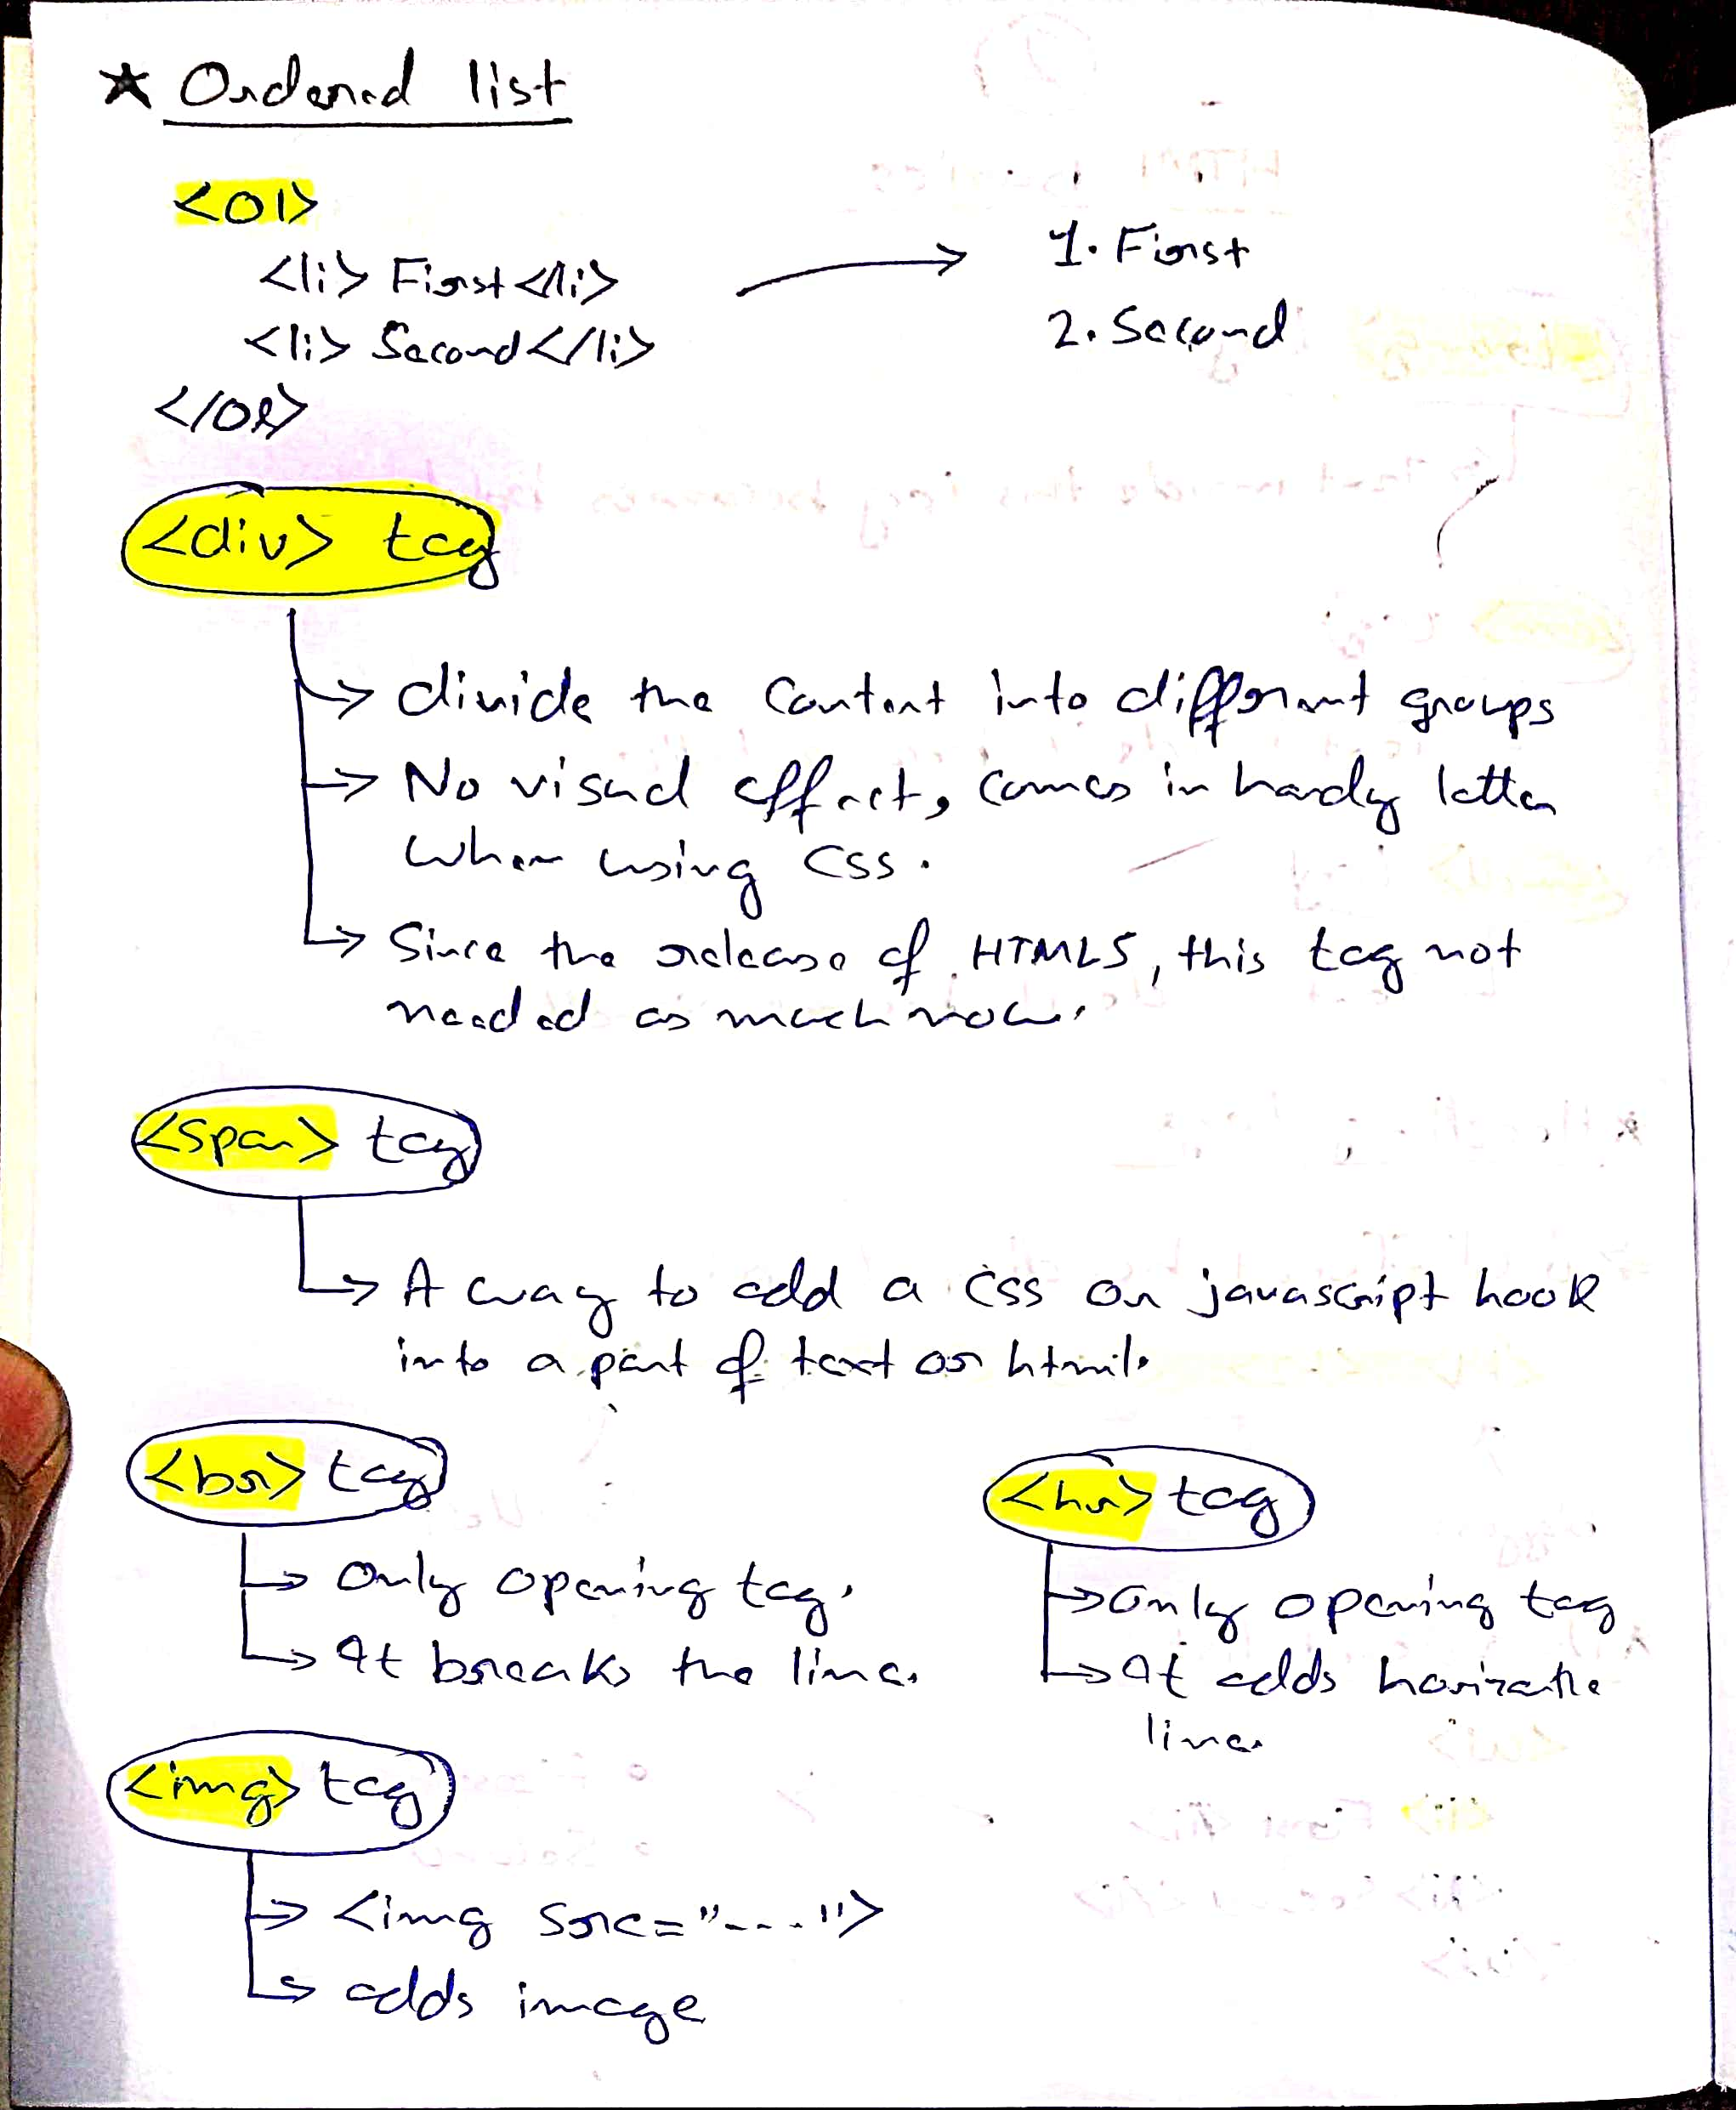 ★ Ordered list
<ol>
<li> First </li>
<li> Second </li>
</ol>
1. First
2. Second
<div> tag
→ divide the content into different groups
→ No visual effect, comes in handy latter
when using CSS.
→ Since the release of HTML5, this tag not
needed as much now.
<span> tag
→ A way to add a css or javascript hook
into a part of text or html.
<br> tag
→ Only opening tag.
→ It breaks the line.
<hr> tag
→ Only opening tag
→ It adds horizontle
line.
<img> tag
→ <img src="---">
→ adds image